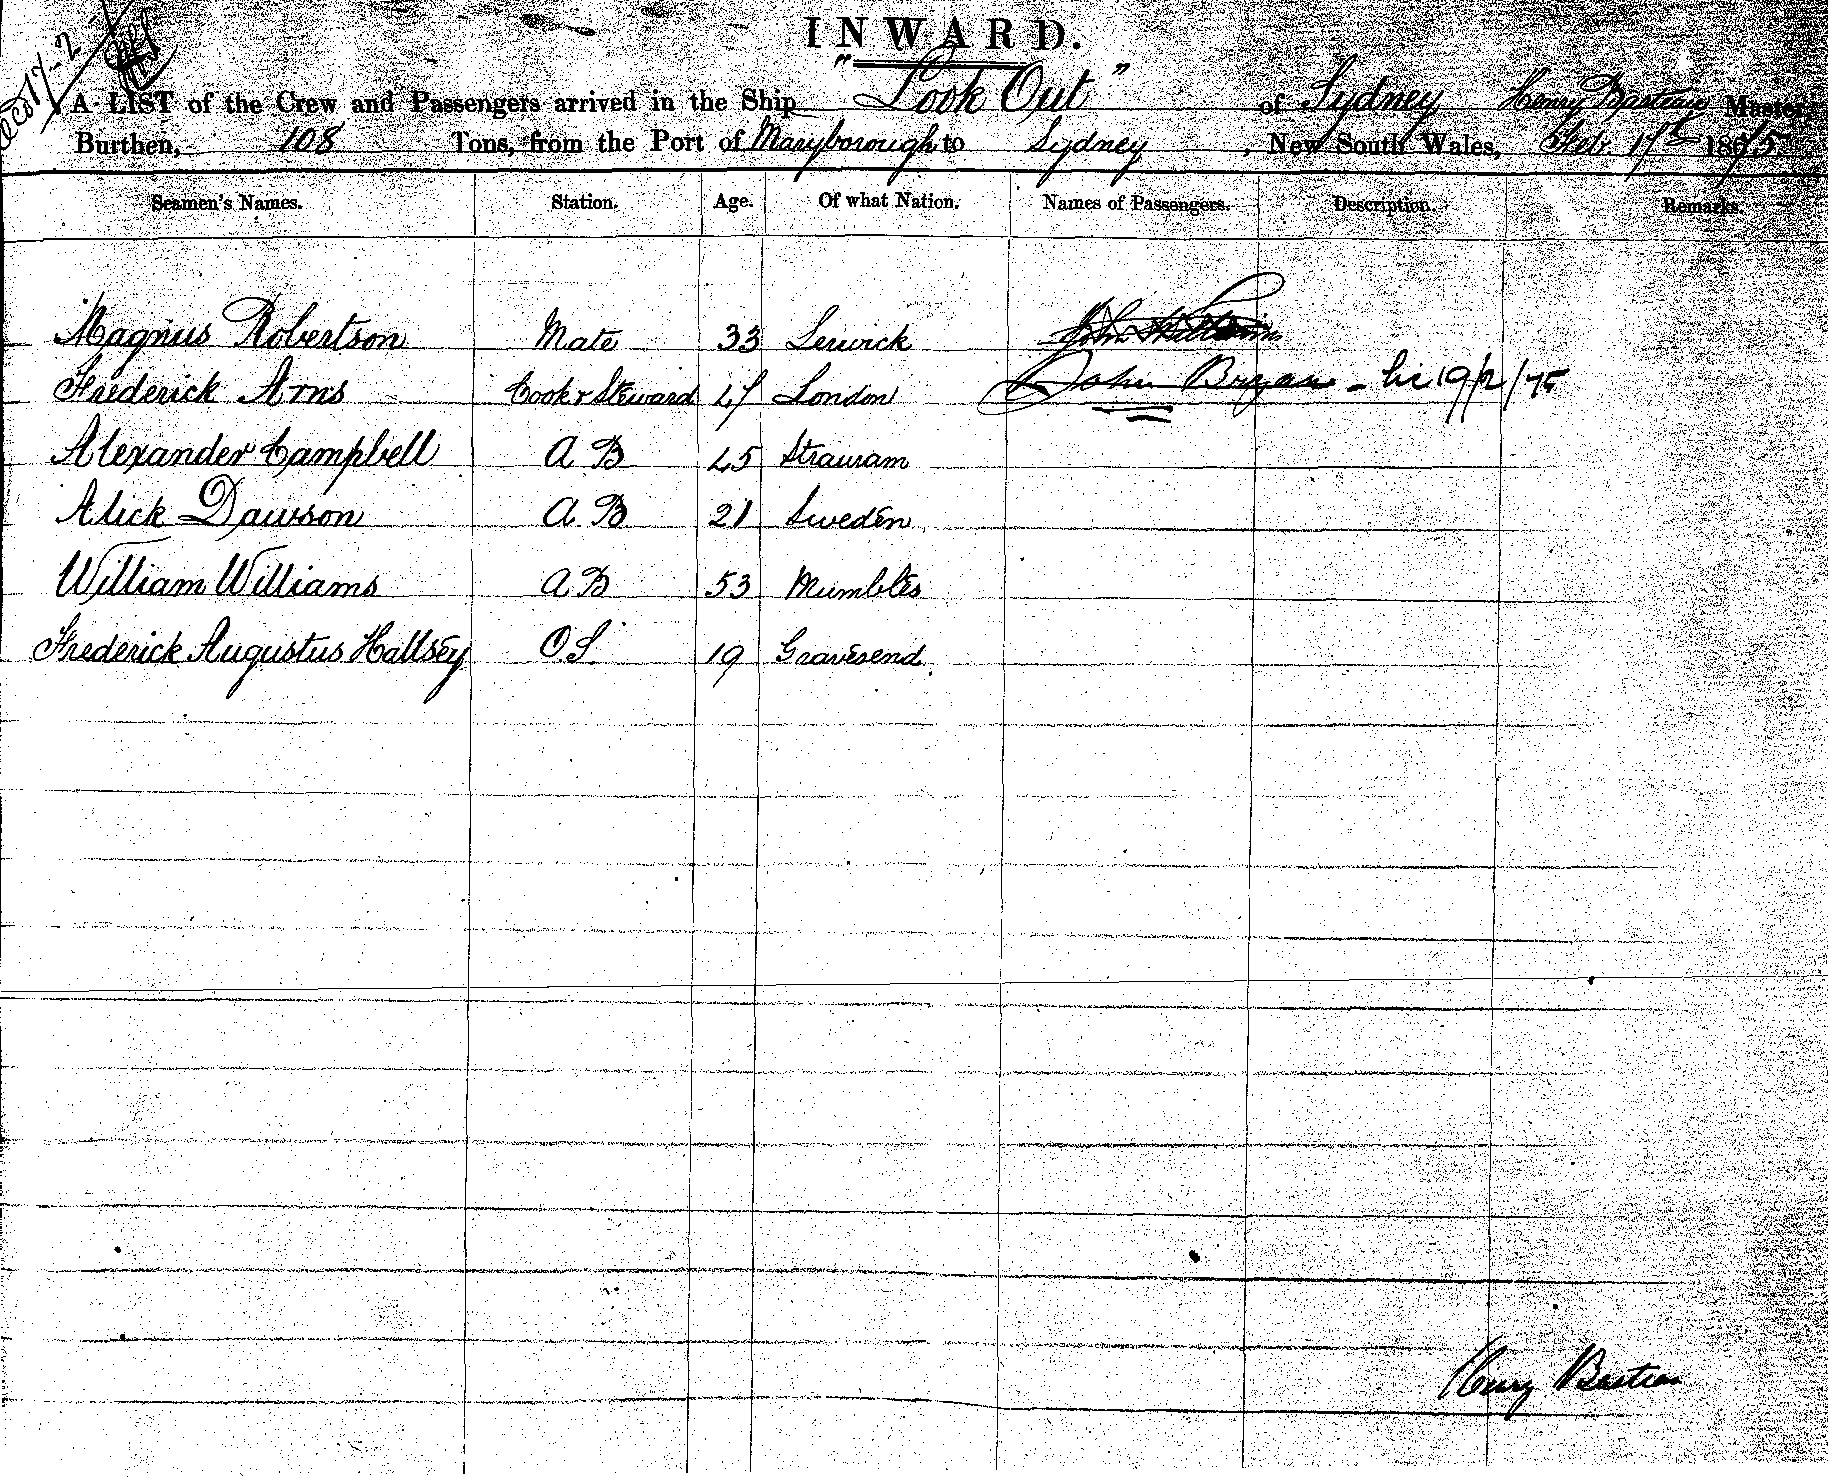 17-2
INWARD.
A LIST of the Crew and Passengers arrived in the Ship "Look Out" of Sydney Henry Bastian Master,
Burthen, 108 Tons, from the Port of Maryborough to Sydney, New South Wales, Feb. 17th 1875
Seamen's Names. Station. Age. Of what Nation. Names of Passengers. Description. Remarks.
Magnus Robertson Mate 33 Lerwick John
Frederick Arns Cook & Steward 47 London John Bryan - 19/2/75
Alexander Campbell A B 45 Stranram
Alick Dawson A B 21 Sweden
William Williams A B 53 Mumbles
Frederick Augustus Hallsey O.S. 19 Gravesend
Henry Bastian